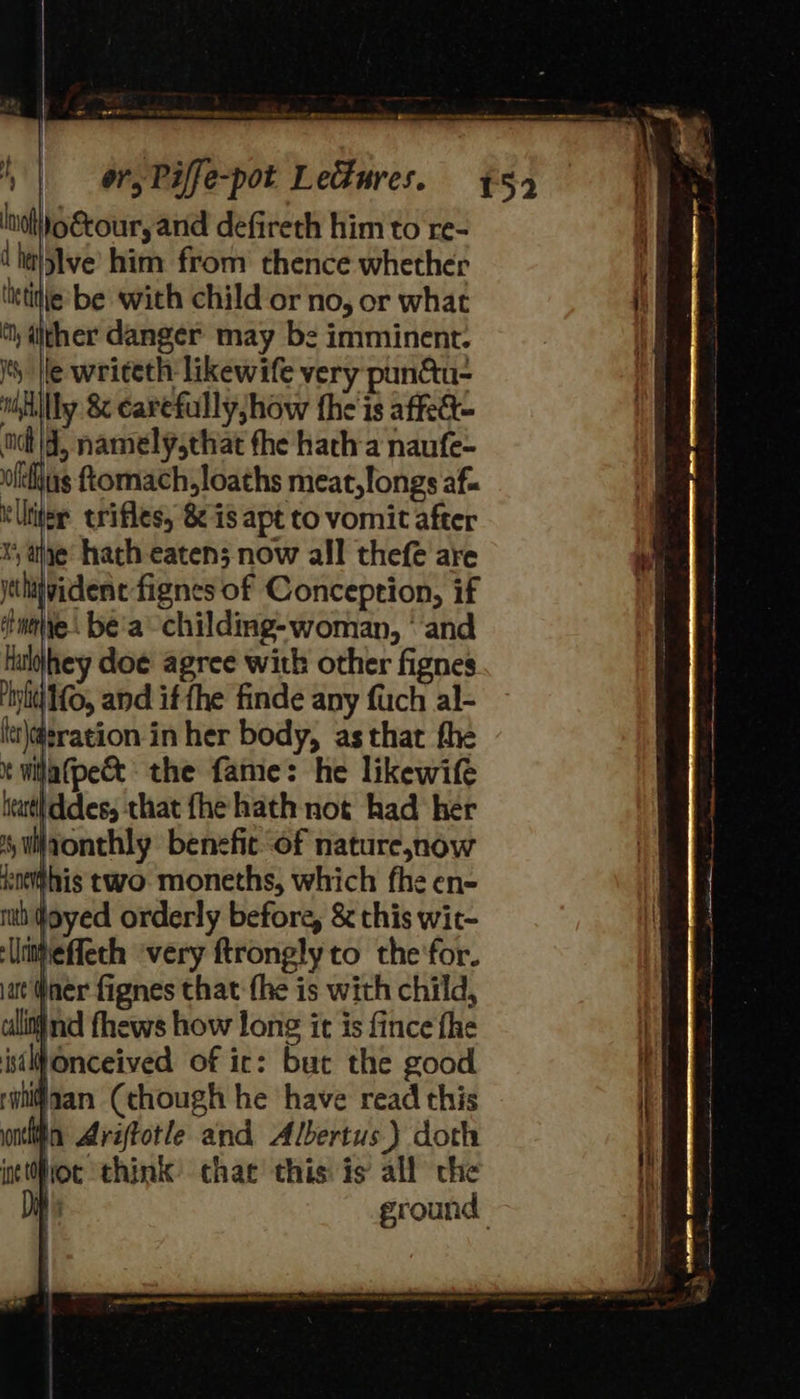 or, Piſſe-pot Lectures. 152
octour, and deſireth him to re-
ſolve him from thence whether
be with child or no, or what
ther danger may be imminent.
e writeth likewiſe very punctu-
lly & carefully, how ſhe is affect-
d, namely, that ſhe hath a nauſe-
us ſtomach, loaths meat, longs af-
er trifles, & is apt to vomit after
e hath eaten; now all theſe are
vident ſignes of Conception, if
e be a childing-woman, and
hey doe agree with other ſignes
lſo, and if ſhe finde any ſuch al-
eration in her body, as that ſhe
aſpect the ſame: he likewiſe
ddes, that ſhe hath not had her
onthly benefit of nature, now
his two moneths, which ſhe en-
oyed orderly before, & this wit-
eſſeth very ſtrongly to the for-
ner ſignes that ſhe is with child,
nd ſhews how long it is ſince ſhe
onceived of it: but the good
an (though he have read this
n Ariſtotle and Albertus) doth
ot think that this is all the
ground